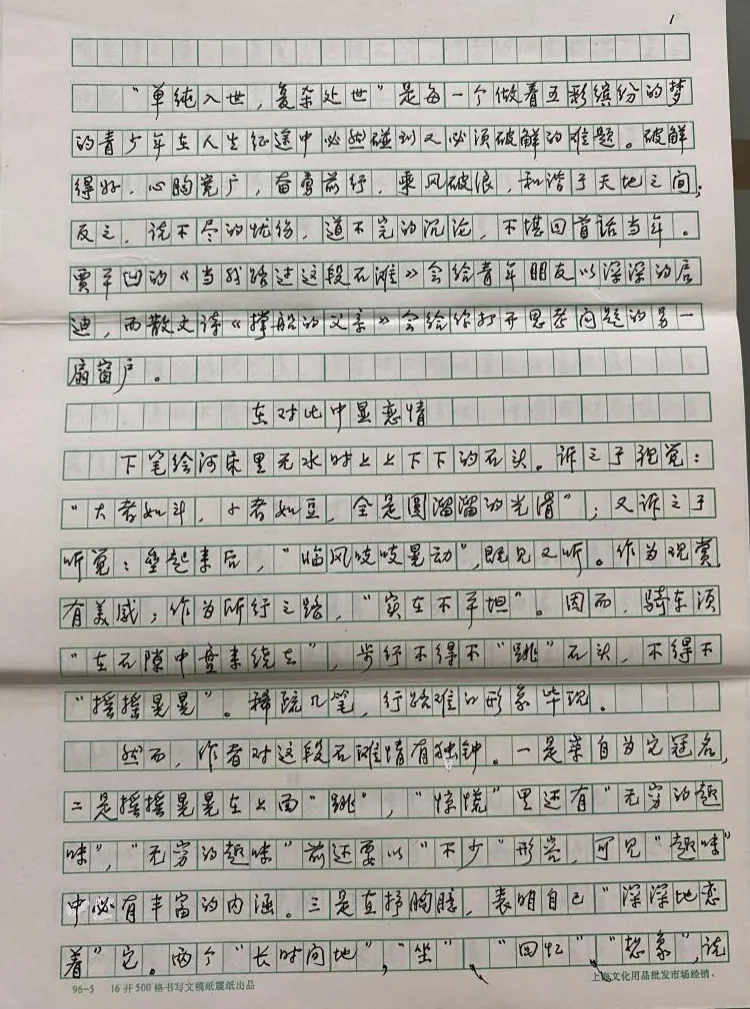 1
“单纯入世，复杂处世”是每一个做着五彩缤纷的梦
的青少年在人生征途中必然碰到又必须破解的难题。破解
得好，心胸宽广，奋勇前行，乘风破浪，和谐于天地之间；
反之，说不尽的忧伤，道不完的沉沦，不堪回首话当年。
贾平凹的《当我路过这段石滩》会给青年朋友以深深的启
迪，而散文诗《撑船的父亲》会给你打开思考问题的另一
扇窗户。
在对比中显恋情
下笔绘河床里无水时上上下下的石头。诉之于视觉：
“大者如斗，小者如豆，全是圆溜溜的光滑”；又诉之于
听觉：垒起来后，“临风吱吱晃动”，既见又听。作为观赏，
有美感；作为所行之路，“实在不平坦”。因而，骑车须
“在石隙中盘来绕去”，步行不得不“跳”石头，不得不
“摇摇晃晃”。稀疏几笔，行路难的形象毕现。
然而，作者对这段石滩情有独钟。一是亲自为它冠名，
二是摇摇晃晃在上面“跳”，“惊慌”里还有“无穷的趣
味”，“无穷的趣味”前还要以“不少”形容，可见“趣味”
中必有丰富的内涵。三是直抒胸臆，表明自己“深深地恋
着”它。两个“长时间地”，“坐”、“回忆”、“想象”，说
96-5 16开500格书写文稿纸震纸出品
上海文化用品批发市场经销、